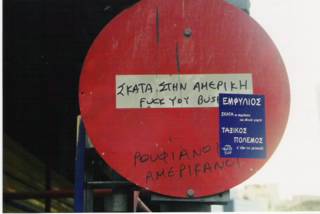 ΣΚΑΤΑ ΣΤΗΝ ΑΜΕΡΙΚΗ
FUCK YOU BUS
ΕΜΦΥΛΙΟΣ
ΤΑΞΙΚΟΣ
ΠΟΛΕΜΟΣ
ΡΟΥΦΙΑΝΟ
ΑΜΕΡΙΚΑΝΟΙ